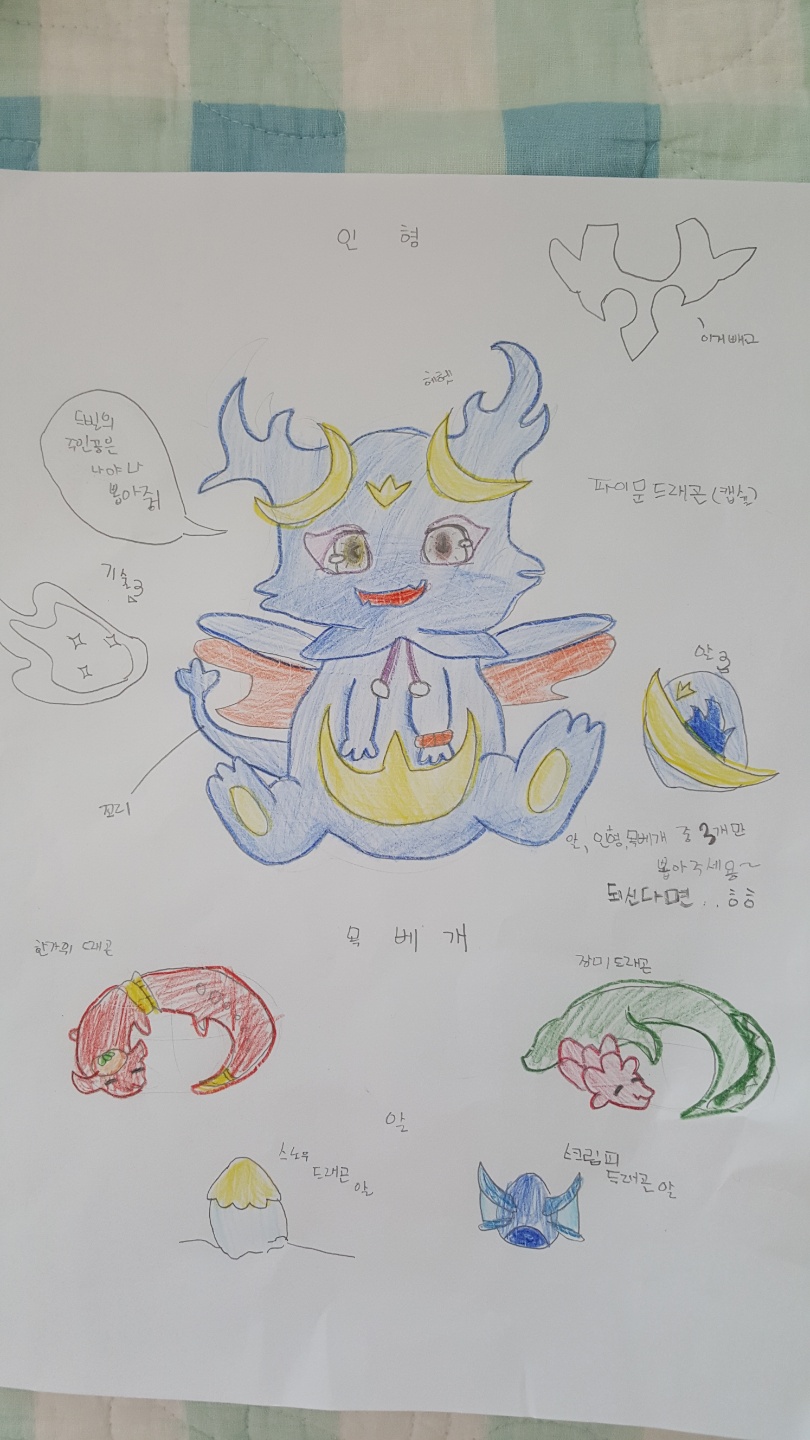 인 형
이거 빼고
헤헷
드빌의
주인공은
나야 나
뽑아줘
파이문 드래곤 (캡슐)
기술
알
꼬리
알, 인형, 목베개 중 3개만
뽑아주세용~
되신다면.. ㅎㅎ
목 베 개
한가위 드래곤
장미 드래곤
알
스노우
드래곤
알
스크림피
드래곤 알